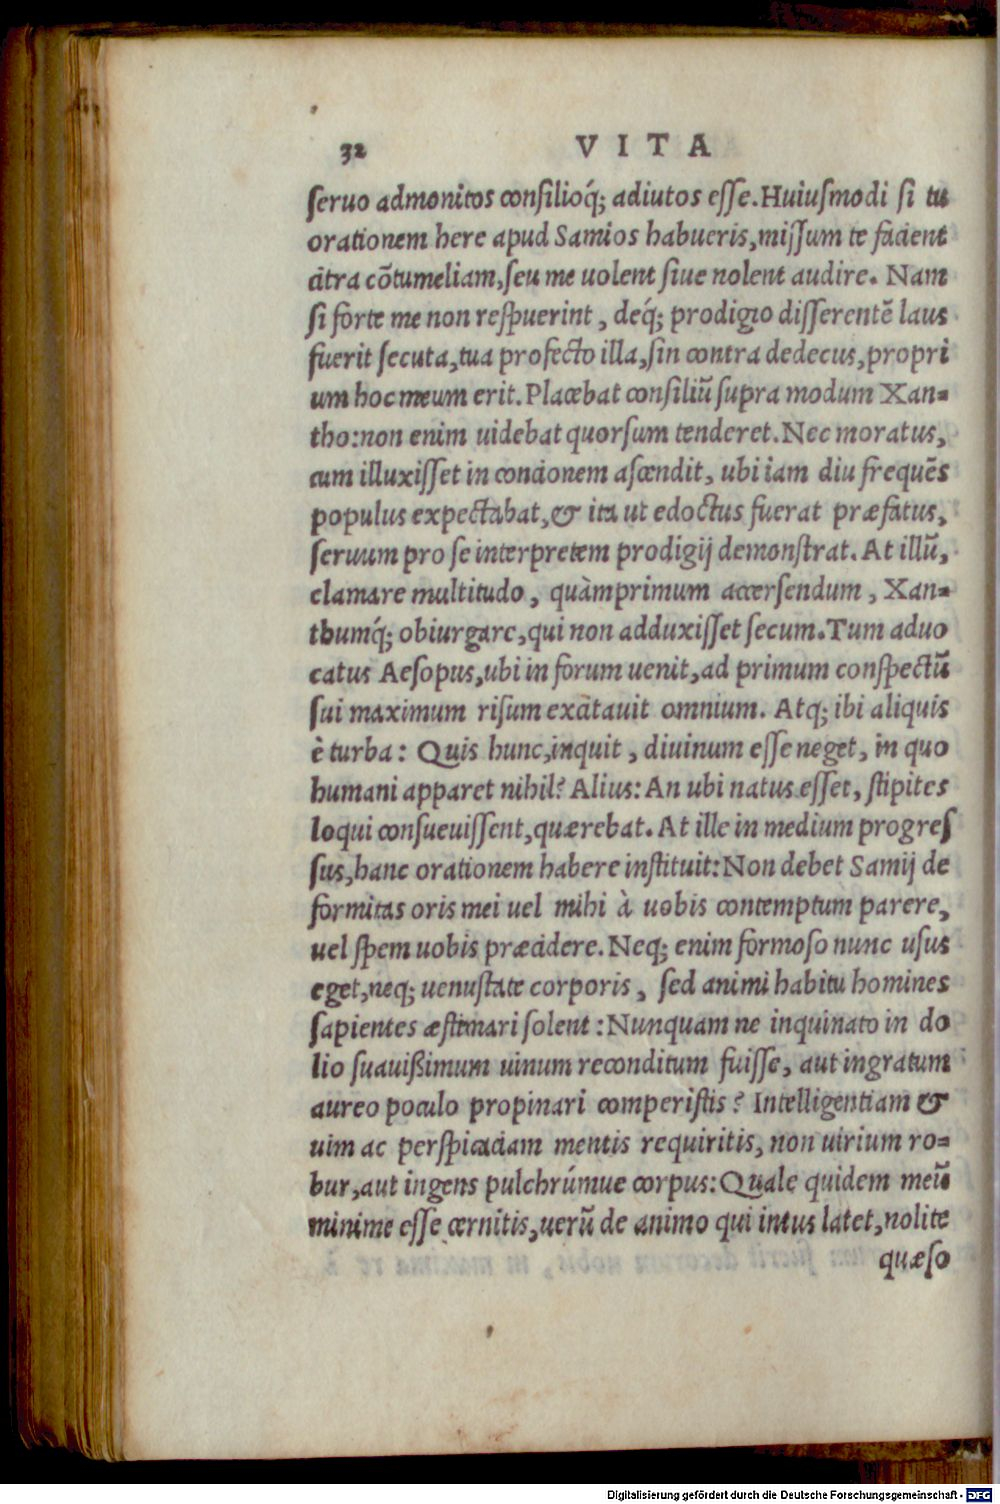 32 VITA
ſeruo admonitos conſilioq́; adiutos eſſe. Huiuſmodi ſi tu
orationem here apud Samios habueris, miſſum te facient
citra cõtumeliam, ſeu me uolent ſiue nolent audire. Nam
ſi forte me non reſpuerint, deq́; prodigio diſſerentẽ laus
fuerit ſecuta, tua profecto illa, ſin contra dedecus, propri
um hoc meum erit. Placebat conſiliũ ſupra modum Xan=
tho: non enim uidebat quorſum tenderet. Nec moratus,
cum illuxiſſet in concionem aſcendit, ubi iam diu frequẽs
populus expectabat, & ita ut edoctus fuerat præfatus,
ſeruum pro ſe interpretem prodigij demonſtrat. At illũ,
clamare multitudo, quàmprimum accerſendum, Xan=
thumq́; obiurgare, qui non adduxiſſet ſecum. Tum aduo
catus Aeſopus, ubi in forum uenit, ad primum conſpectũ
ſui maximum riſum excitauit omnium. Atq; ibi aliquis
è turba: Quis hunc, inquit, diuinum eſſe neget, in quo
humani apparet nihil? Alius: An ubi natus eſſet, ſtipites
loqui conſueuiſſent, quærebat. At ille in medium progreſ
ſus, hanc orationem habere inſtituit: Non debet Samij de
formitas oris mei uel mihi à uobis contemptum parere,
uel ſpem uobis præcidere. Neq; enim formoſo nunc uſus
eget, neq; uenuſtate corporis, ſed animi habitu homines
ſapientes æſtimari ſolent: Nunquam ne inquinato in do
lio ſuauißimum uinum reconditum fuiſſe, aut ingratum
aureo poculo propinari comperiſtis? Intelligentiam &
uim ac perſpicaciam mentis requiritis, non uirium ro=
bur, aut ingens pulchrúmue corpus: Quale quidem meũ
minime eſſe cernitis, uerũ de animo qui intus latet, nolite
quæſo
Digitalisierung gefördert durch die Deutsche Forschungsgemeinschaft - DFG